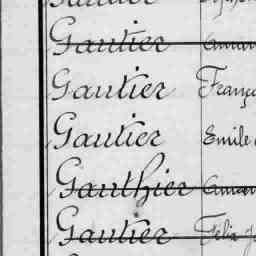 Gautier
Gautier Franço
Gautier Emile
Gauthier
Gautier Félix